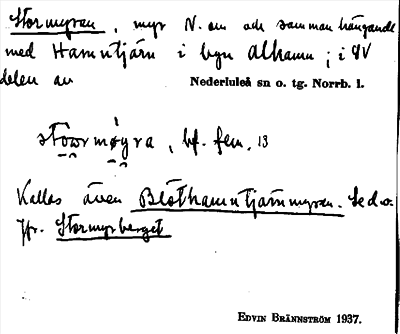 Stormyran, myr N. om och sammanhängande
med Hamntjärn i byn Alhamn; i NV
delen av Nederluleå sn o. tg. Norrb. l.
stoormøyra, bf. fem. 13
Kallas även Blöthamntjärnmyran. Se d.o.
Jfr. Stormyrberget
EDVIN BRÄNNSTRÖM 1937.